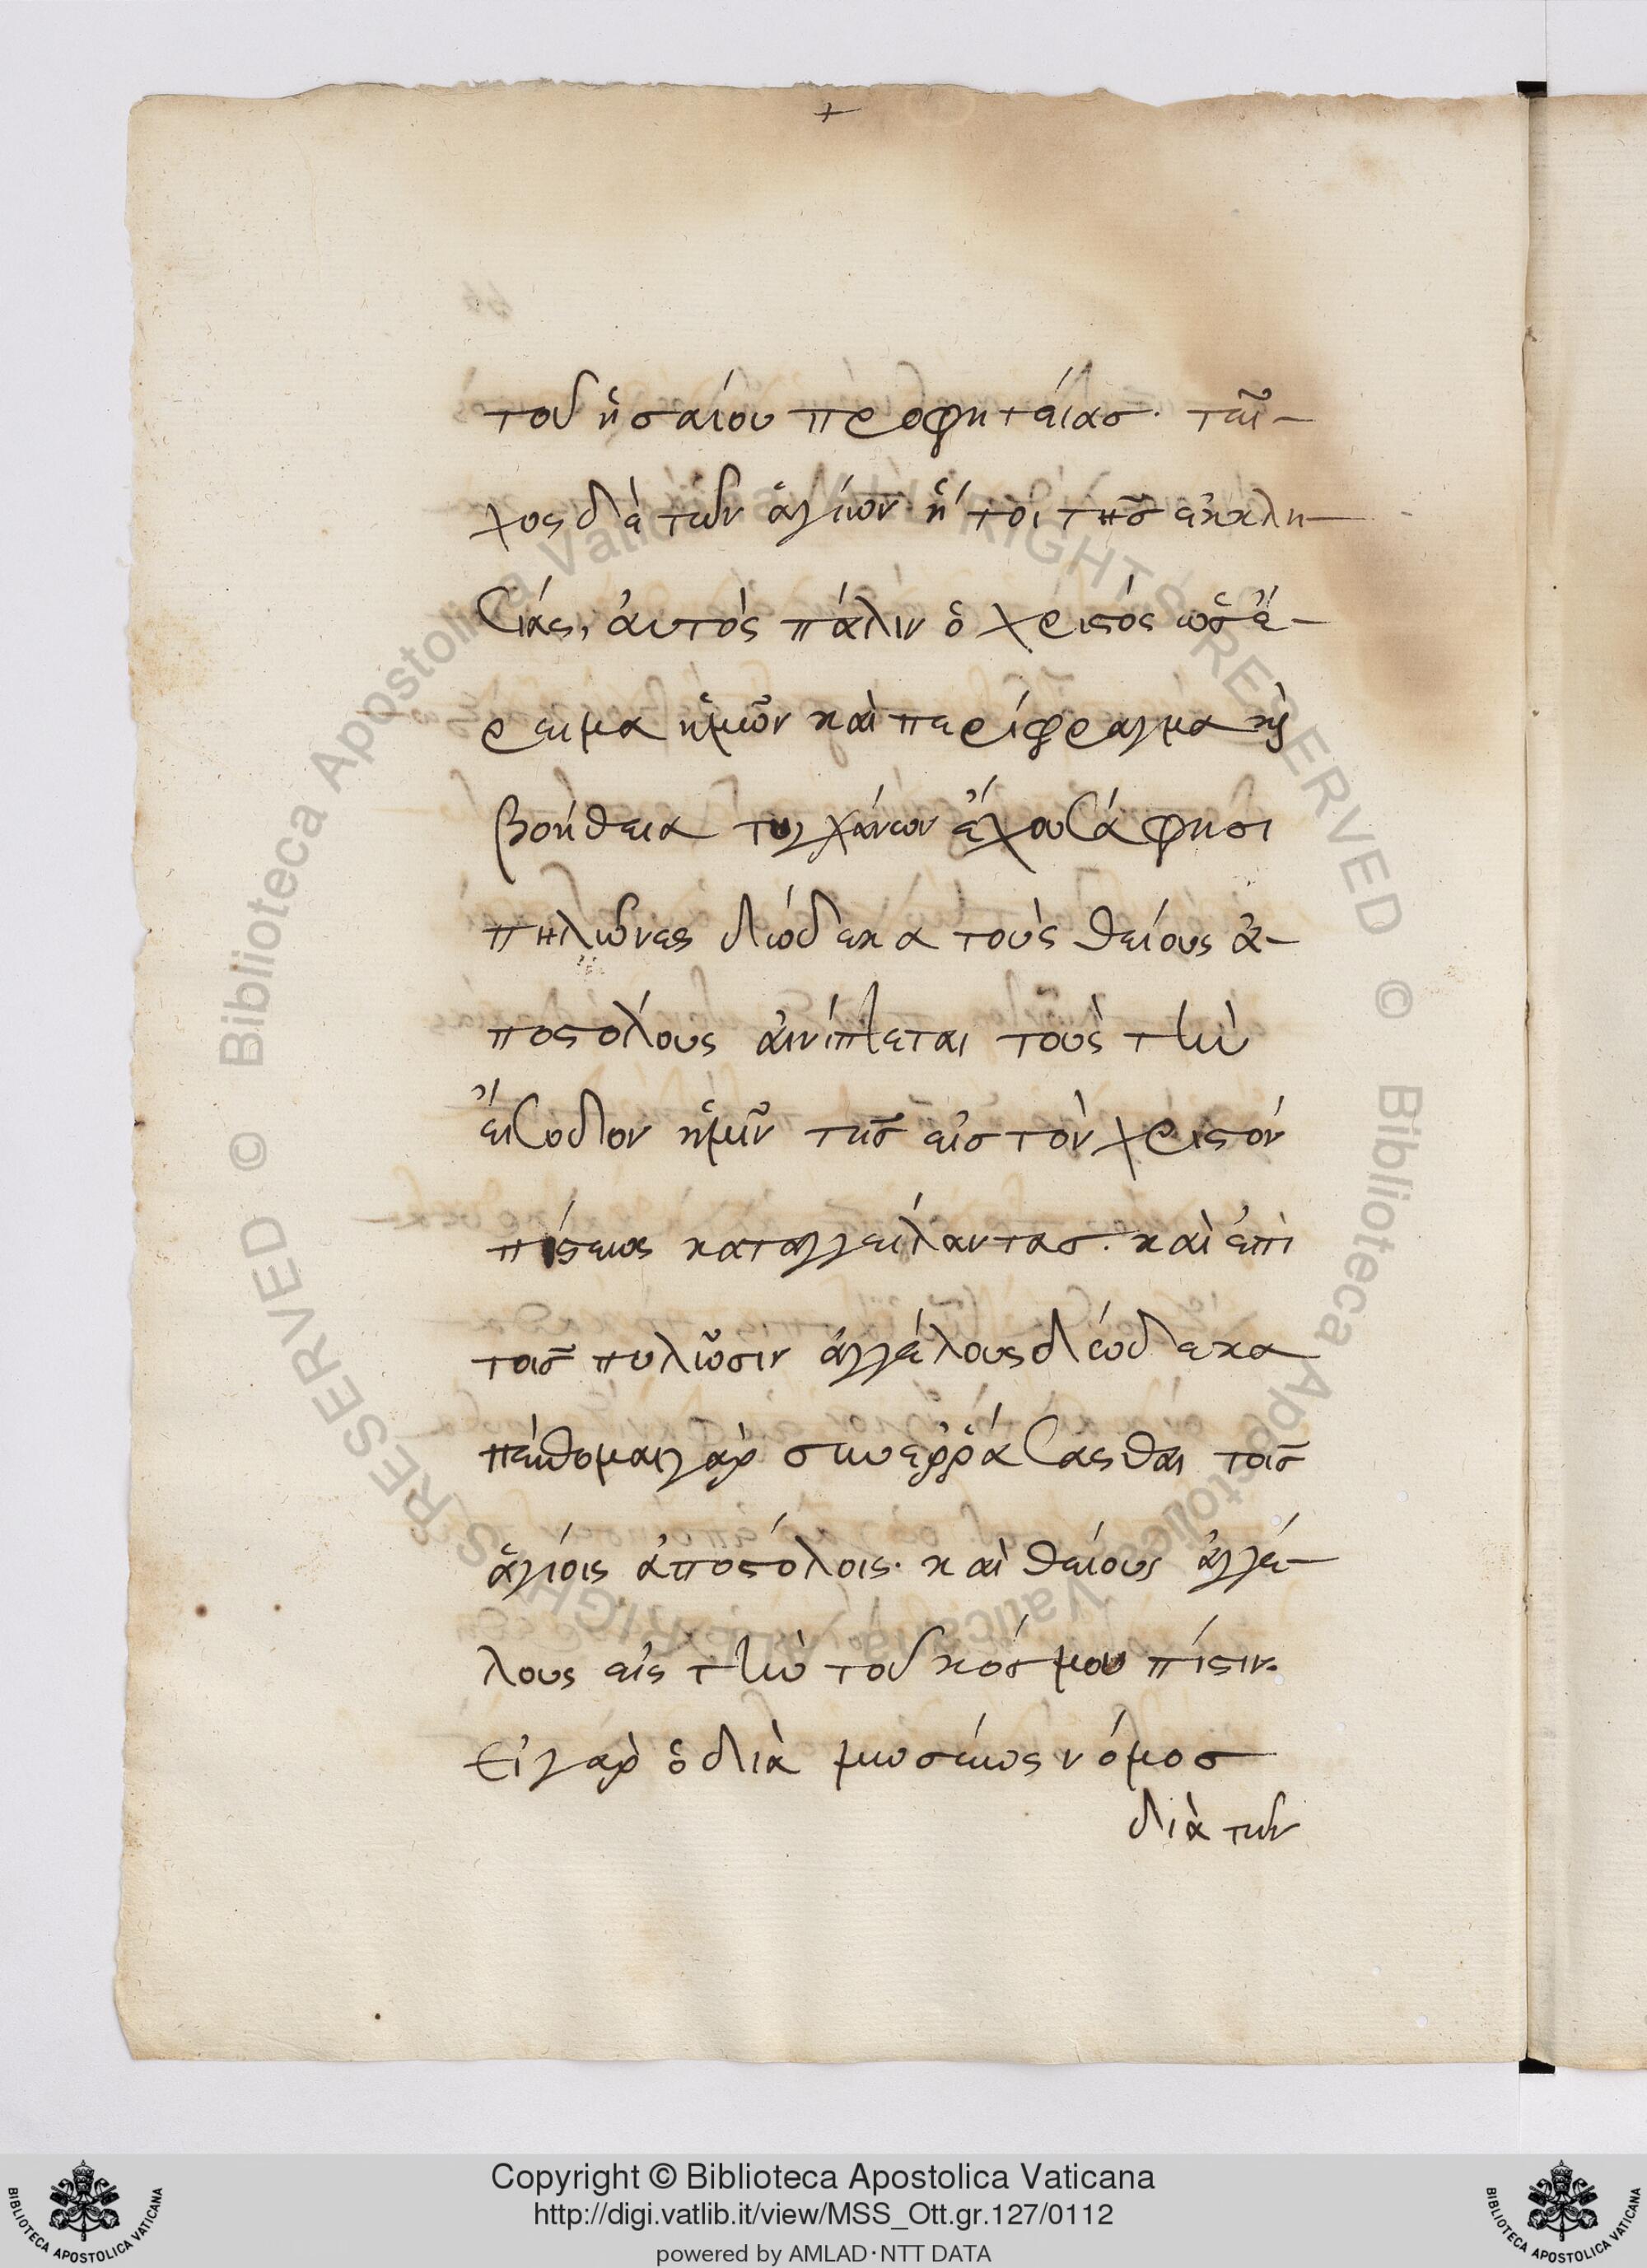 +
τοῦ ἡσαΐου προφητείας· τεῖ-
χος δὲ τῶν ἁγίων ἤτοι τῆς ἐκκλη-
σίας, αὐτὸς πάλιν ὁ χριστός ὡς ἔ-
ρεισμα ἡμῶν καὶ περίφραγμα καὶ
βοήθεια τυγχάνων ἔχουσά φησι
πηλῶνες δώδεκα τοὺς θείους ἀ-
ποστόλους αἰνίττεται τοὺς τὴν
εἴσοδον ἡμῖν τῆς εἰς τὸν χριστόν
πίστεως καταγγείλαντας. καὶ ἐπὶ
τοῖς πυλῶσιν ἀγγέλους δώδεκα
πείθομαι γὰρ συνεργάσασθαι τοῖς
ἁγίοις ἀποστόλοις. καὶ θείους ἀγγέ-
λους εἰς τὴν τοῦ κόσμου πίστιν.
Εἰ γὰρ ὁ διὰ μωσέως νόμος
διὰ τῶν
© Biblioteca Apostolica Vaticana ALL RIGHTS RESERVED
© Biblioteca Apostolica Vaticana ALL RIGHTS RESERVED
Copyright © Biblioteca Apostolica Vaticana
http://digi.vatlib.it/view/MSS_Ott.gr.127/0112
powered by AMLAD·NTT DATA
BIBLIOTECA APOSTOLICA VATICANA
BIBLIOTECA APOSTOLICA VATICANA